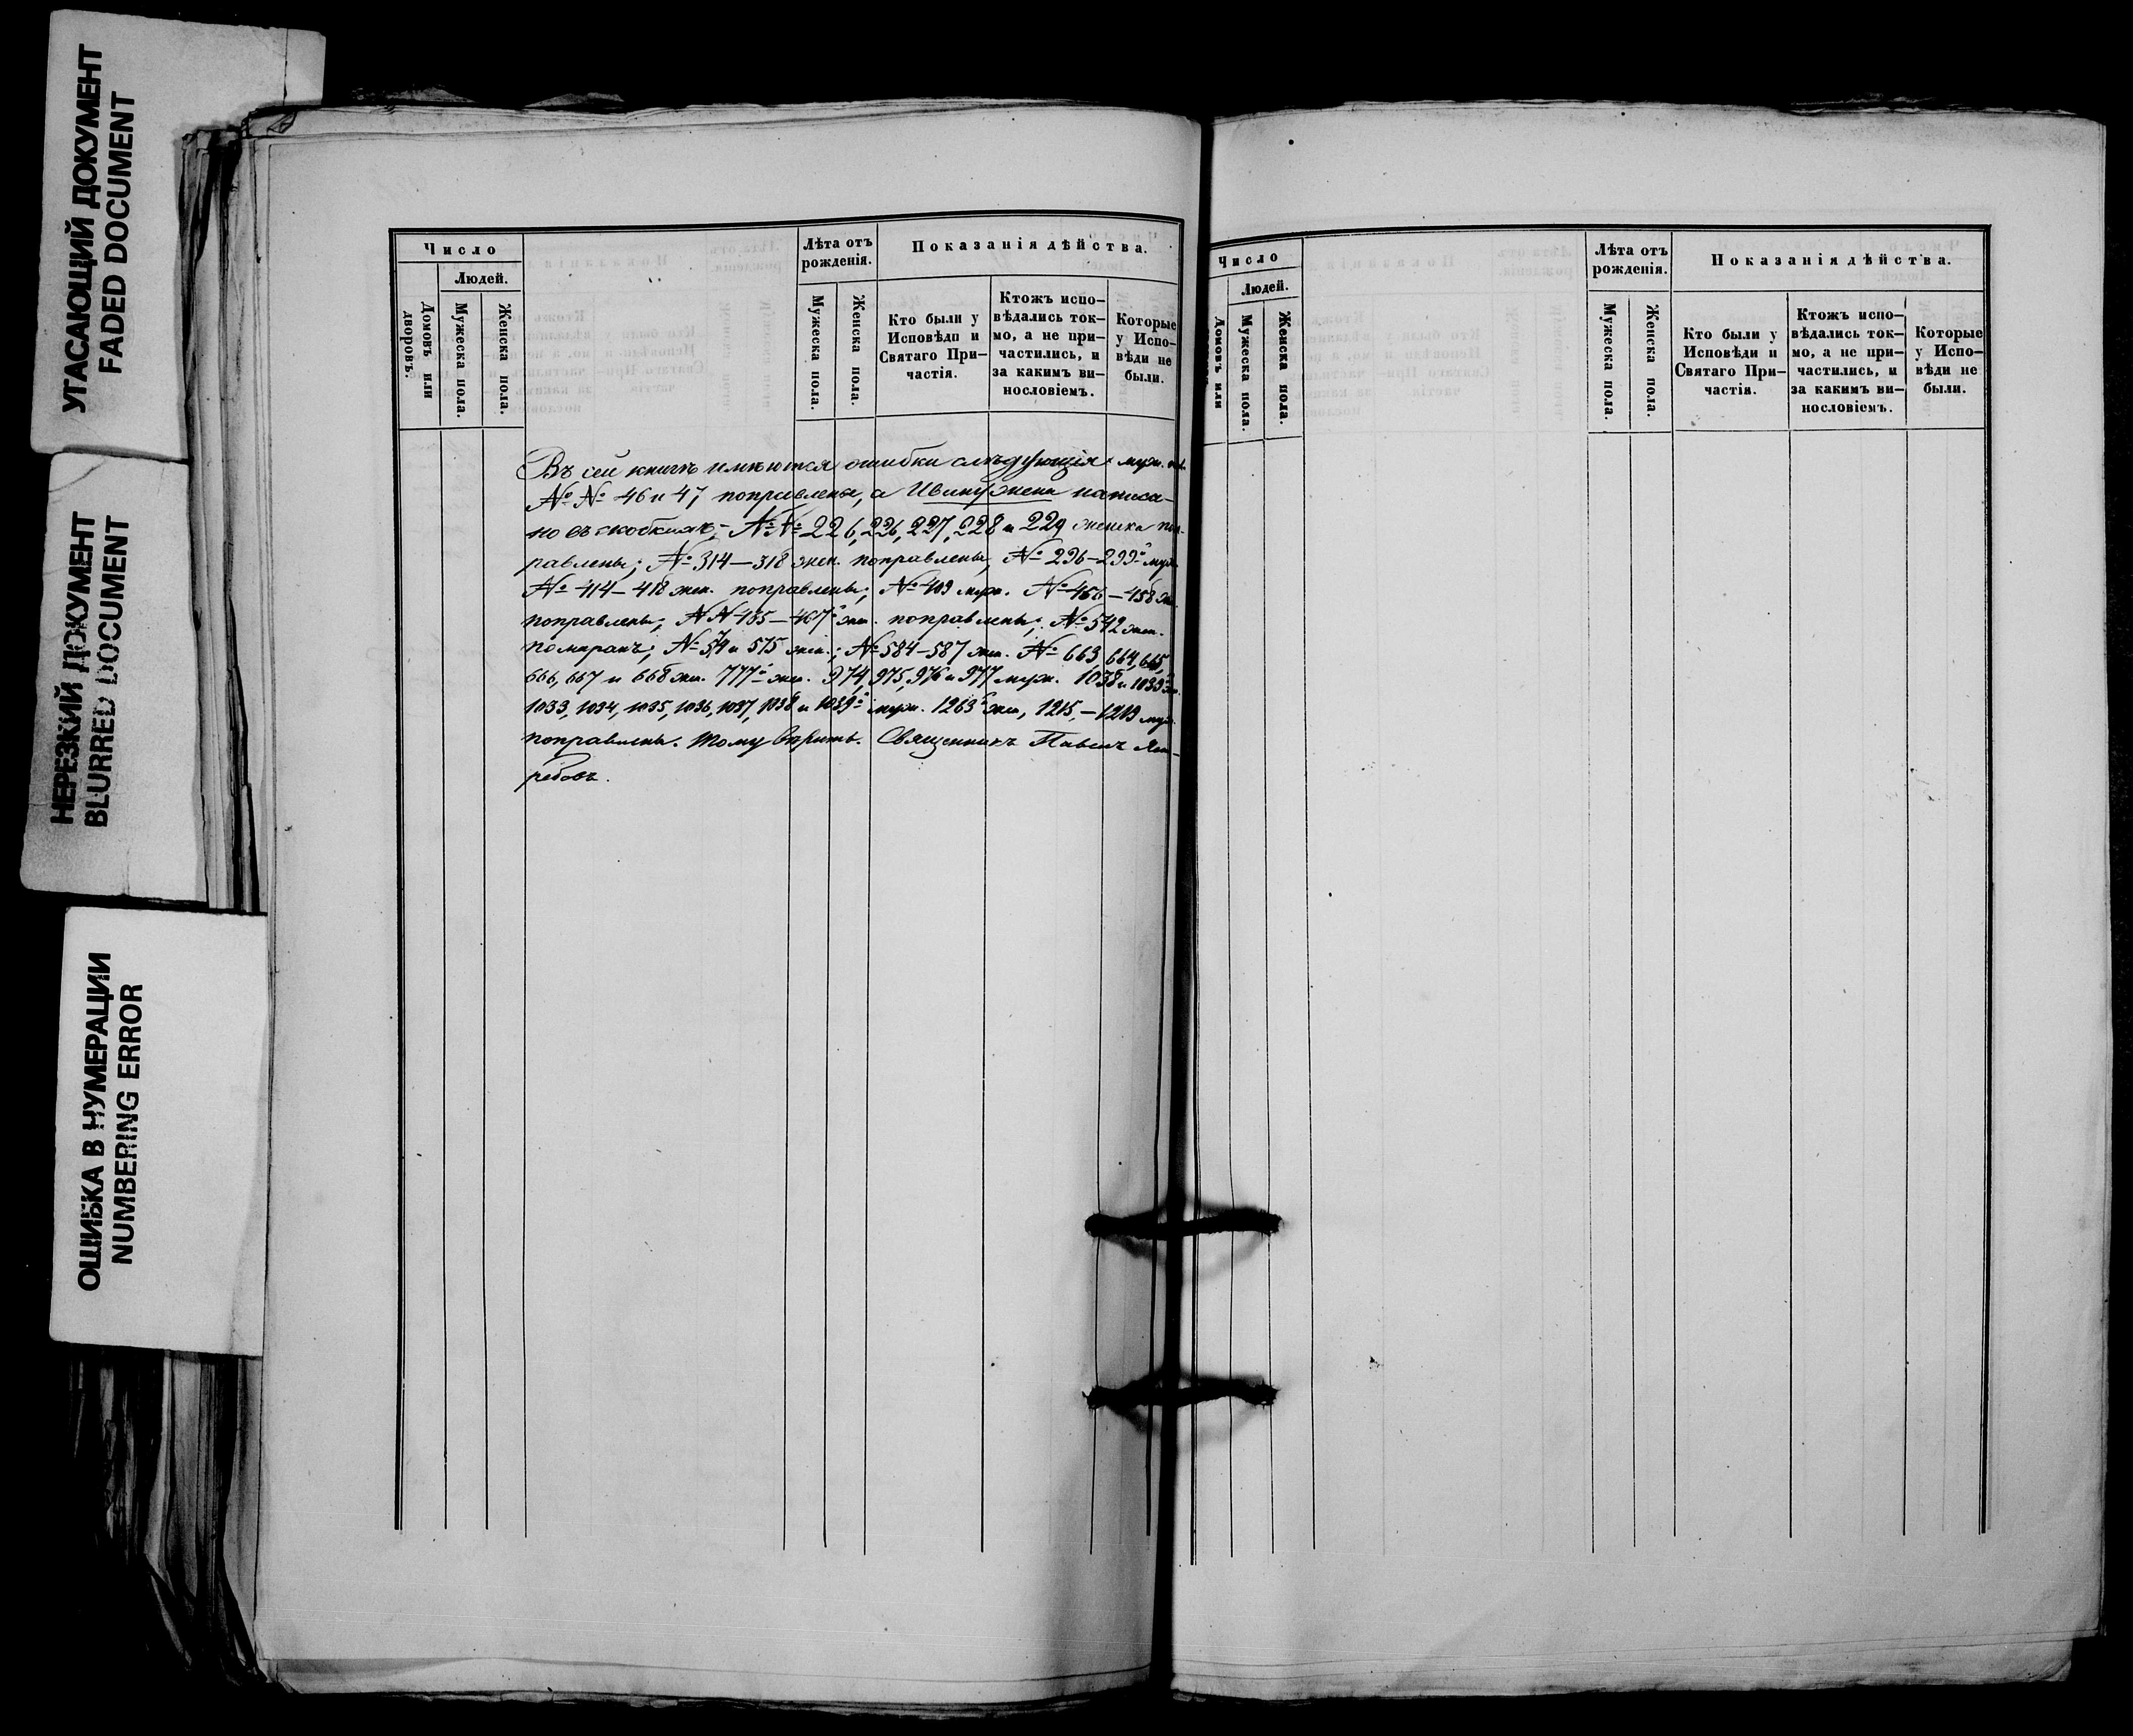 УГАСАЮЩИЙ ДОКУМЕНТ
FADED DOCUMENT
НЕРЕЗКИЙ ДОКУМЕНТ
BLURRED DOCUMENT
ОШИБКА В НУМЕРАЦИИ
NUMBERING ERROR
Число
Людей.
Домовъ или дворовъ.
Мужеска пола.
Женска пола.
Лѣта отъ
рожденія.
Мужеска пола.
Женска пола.
Показанія дѣйства.
Кто были у
Исповѣди и
Святаго При-
частія.
Ктожъ испо-
вѣдались ток-
мо, а не при-
частились, и
за какимъ ви-
нословіемъ.
Которые
у Испо-
вѣди не
были.
Въ сей книгѣ имѣются ошибки слѣдующія: муж.
№№ 46 и 47 поправлены, а написа-
но въ скобкахъ; №№ 226, 226, 227, 228 и 229 женска поп-
равлены; № 314–318 жен. поправлены, № 296–299 муж.
№ 414–418 жен. поправлены; № 409 муж. № 456–458 жен.
поправлены; №№ 485–487 жен. поправлены; № 542 жен.
помаранъ; № 574 и 575 жен.; № 584–587 жен. № 663, 664, 665,
666, 667 и 668 жен. 777 жен. 974, 975, 976 и 977 муж. 1038 и 1039
1033, 1034, 1035, 1036, 1037, 1038 и 1039 муж. 1263 жен, 1215,–1219 муж.
поправлены. Тому вѣрить. Священникъ Павелъ Яст-
ребовъ.
Число
Людей.
Домовъ или
Мужеска пола.
Женска пола.
Лѣта отъ
рожденія.
Мужеска пола.
Женска пола.
Показанія дѣйства.
Кто были у
Исповѣди и
Святаго При-
частія.
Ктожъ испо-
вѣдались ток-
мо, а не при-
частились, и
за какимъ ви-
нословіемъ.
Которые
у Испо-
вѣди не
были.